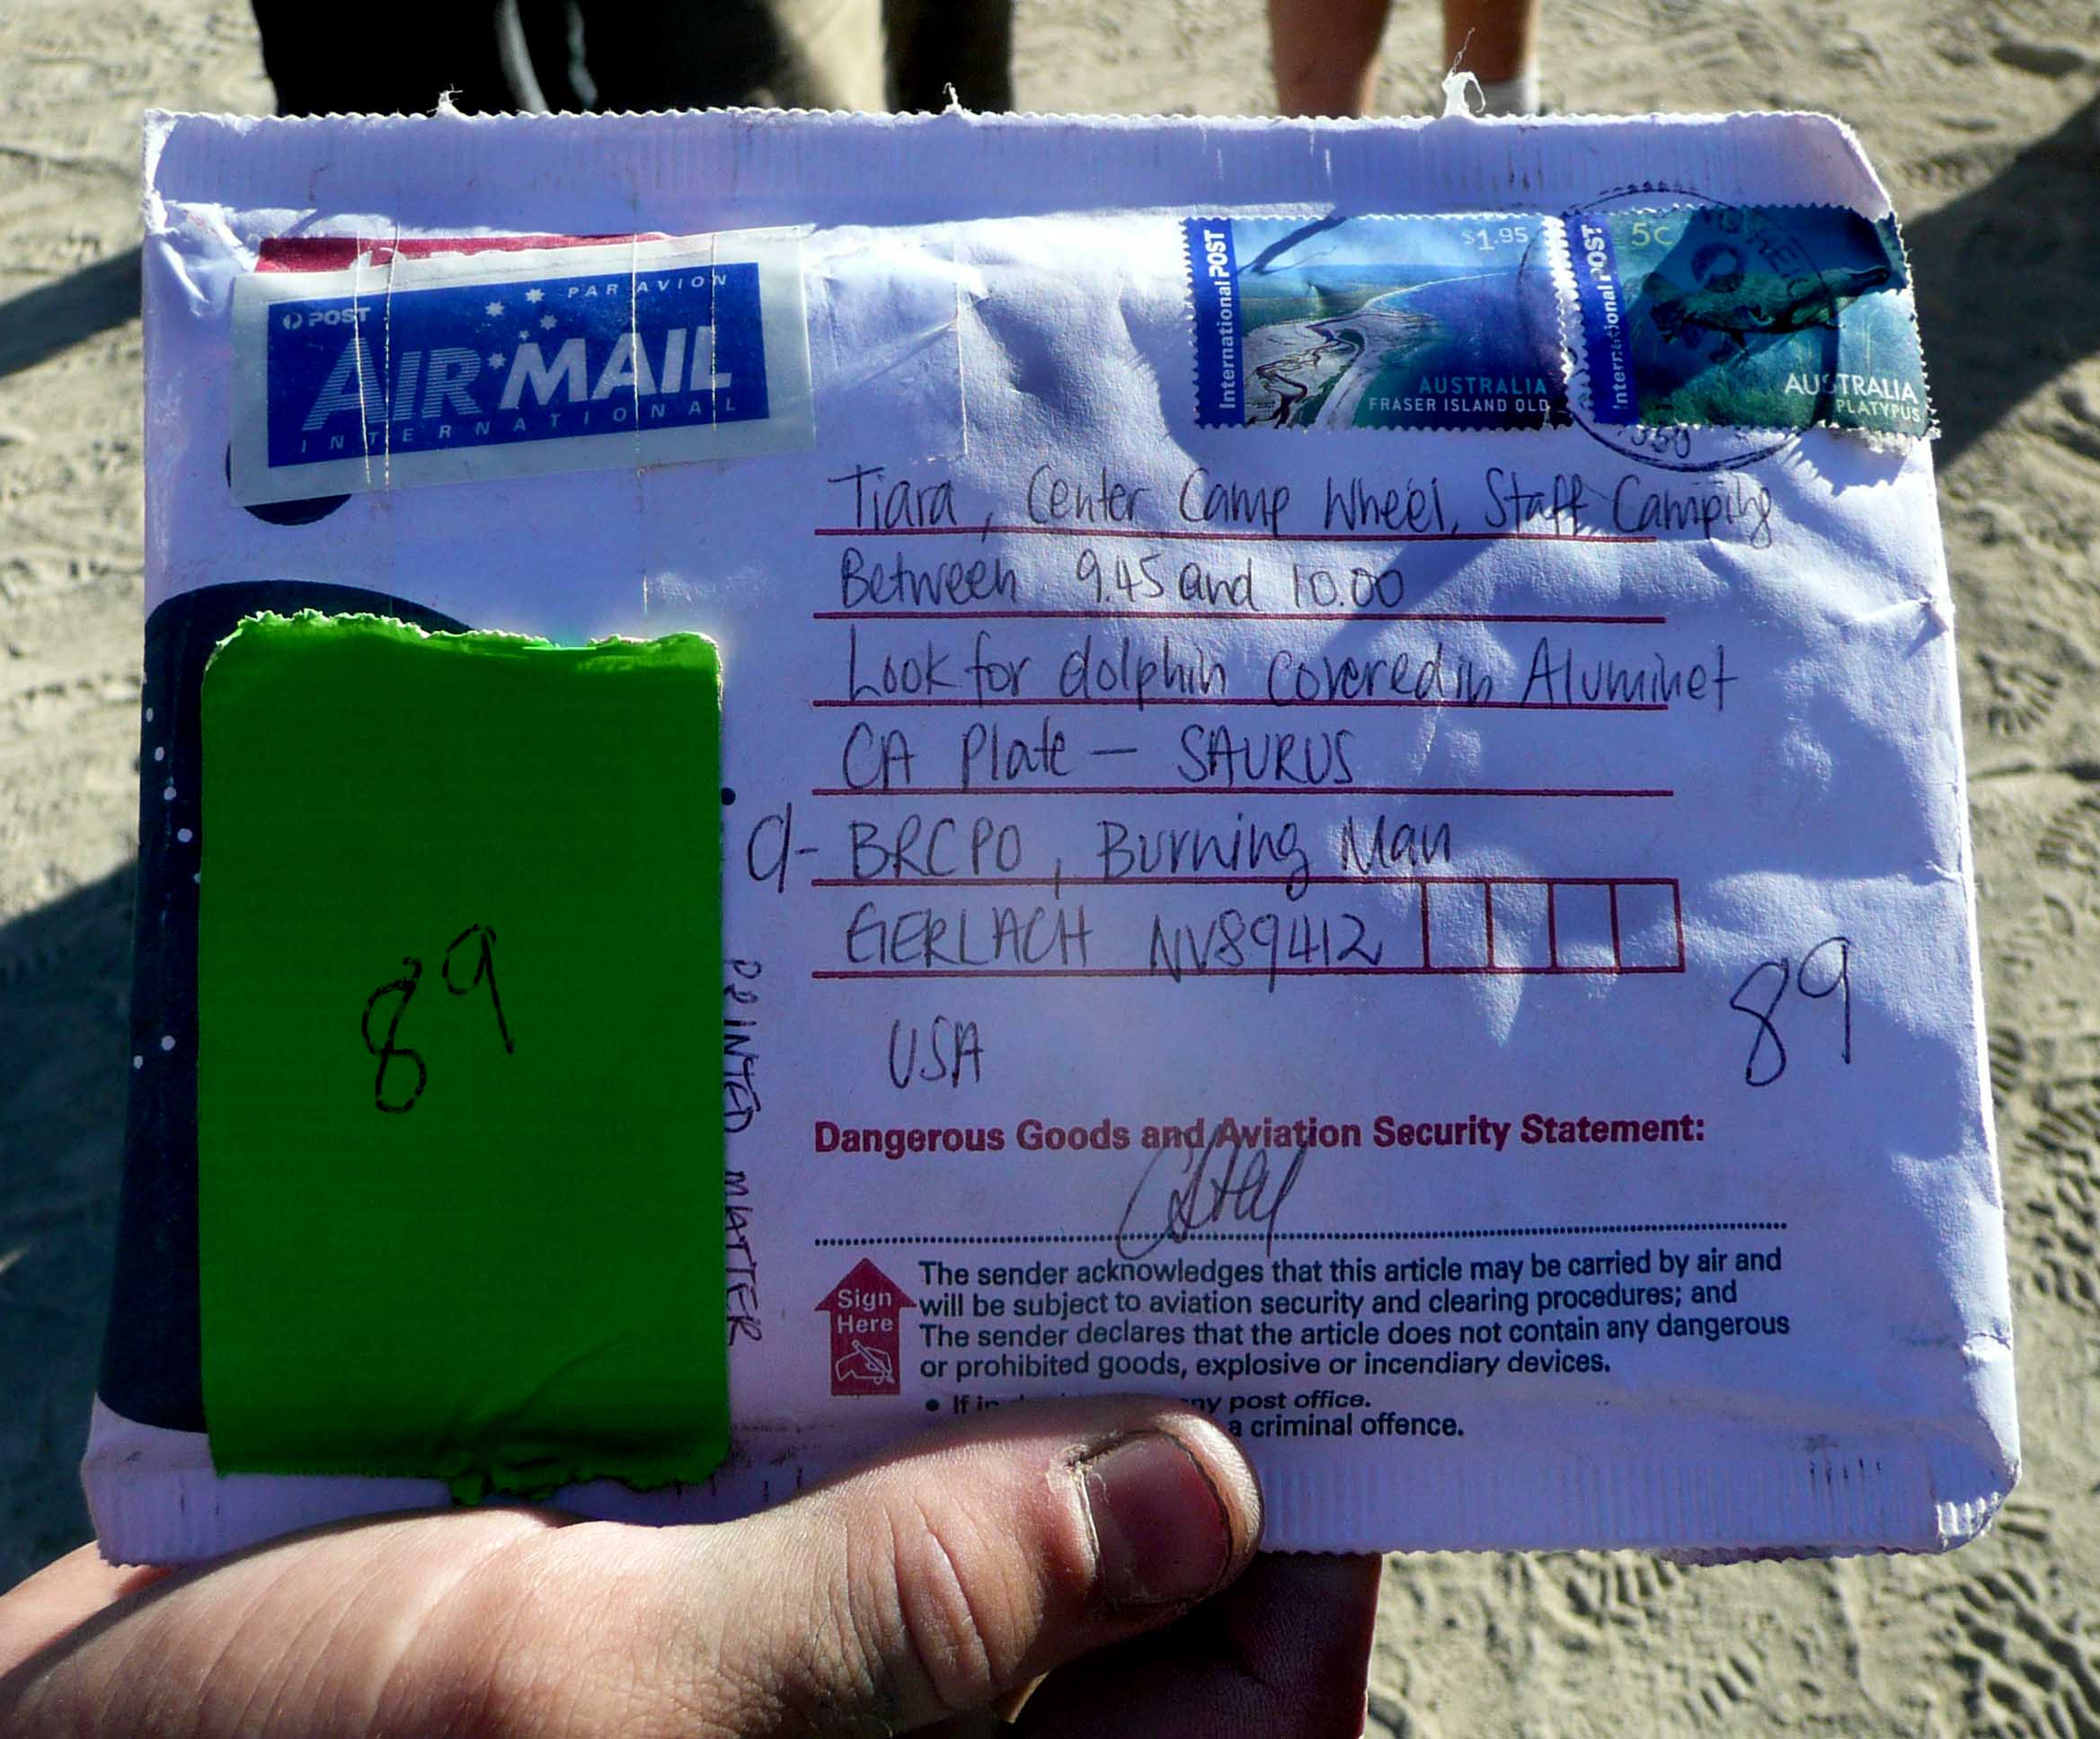 POST
PAR AVION
AIR MAIL
INTERNATIONAL
International POST
$1.95
AUSTRALIA
FRASER ISLAND QLD
International POST
5c
AUSTRALIA
PLATYPUS
Tiara, Center Camp Wheel, Staff Camping
Between 9.45 and 10.00
Look for dolphin covered in Aluminet
CA Plate - SAURUS
BRCPO, Burning Man
GERLACH NV89412
USA
89
89
PRINTED MATTER
Dangerous Goods and Aviation Security Statement:
Sign
Here
The sender acknowledges that this article may be carried by air and
will be subject to aviation security and clearing procedures; and
The sender declares that the article does not contain any dangerous
or prohibited goods, explosive or incendiary devices.
• If post office.
a criminal offence.